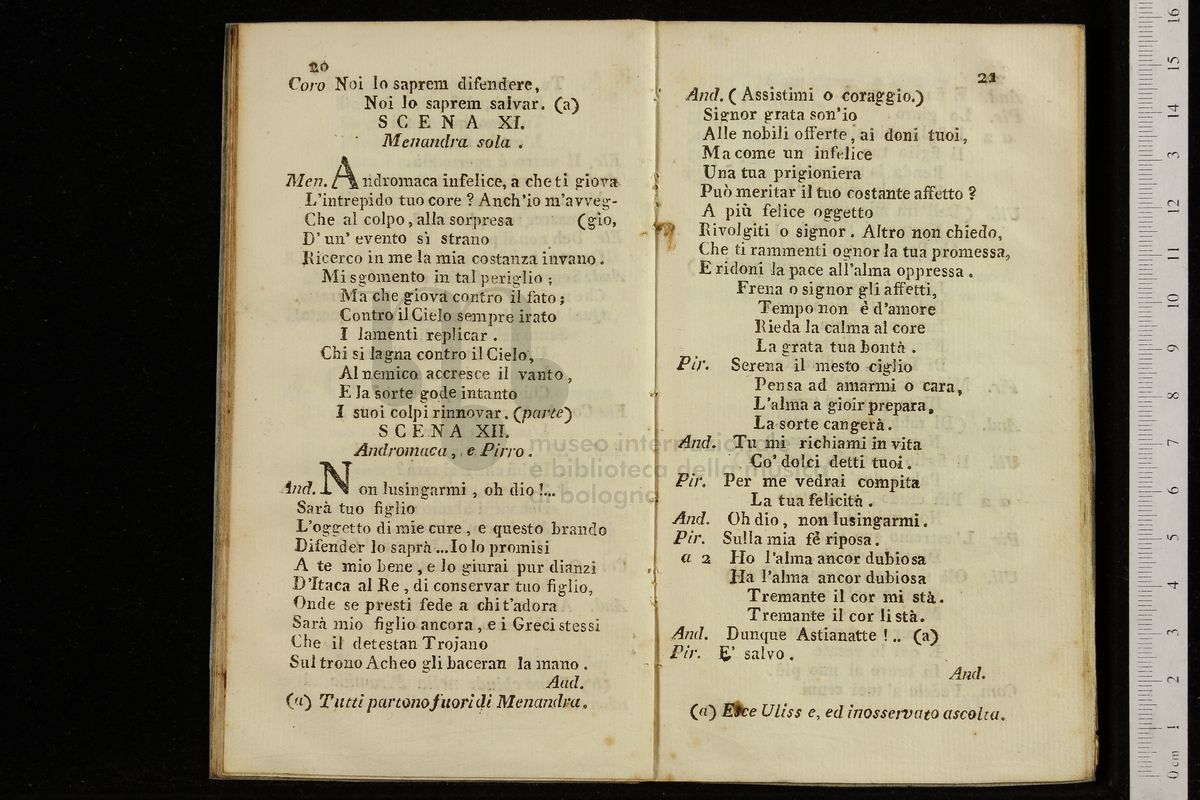 20
Coro Noi lo saprem difendere,
Noi lo saprem salvar. (a)
SCENA XI.
Menandra sola .
Men. Andromaca infelice, a che ti giova
L'intrepido tuo core ? Anch'io m'avveg-
Che al colpo , alla sorpresa (gio,
D' un' evento sì strano
Ricerco in me la mia costanza invano .
Mi sgomento in tal periglio ;
Ma che giova contro il fato ;
Contro il Cielo sempre irato
I lamenti replicar .
Chi si lagna contro il Cielo,
Al nemico accresce il vanto ,
E la sorte gode intanto
I suoi colpi rinnovar. (parte)
SCENA XII.
Andromaca , e Pirro .
And. Non lusingarmi , oh dio !...
Sarà tuo figlio
L'oggetto di mie cure , e questo brando
Difender lo saprà ... Io lo promisi
A te mio bene , e lo giurai pur dianzi
D'Itaca al Re , di conservar tuo figlio,
Onde se presti fede a chi t'adora
Sarà mio figlio ancora , e i Greci stessi
Che il detestan Trojano
Sul trono Acheo gli baceran la mano .
Aud.
(a) Tutti partono fuori di Menandra.
21
And. ( Assistimi o coraggio.)
Signor grata son'io
Alle nobili offerte , ai doni tuoi,
Ma come un infelice
Una tua prigioniera
Può meritar il tuo costante affetto ?
A più felice oggetto
Rivolgiti o signor . Altro non chiedo,
Che ti rammenti ognor la tua promessa,
E ridoni la pace all'alma oppressa .
Frena o signor gli affetti,
Tempo non è d'amore
Rieda la calma al core
La grata tua bontà .
Pir. Serena il mesto ciglio
Pensa ad amarmi o cara,
L'alma a gioir prepara,
La sorte cangerà .
And. Tu mi richiami in vita
Co' dolci detti tuoi .
Pir. Per me vedrai compita
La tua felicità .
And. Oh dio , non lusingarmi .
Pir. Sulla mia fè riposa .
a 2 Ho l'alma ancor dubiosa
Ha l'alma ancor dubiosa
Tremante il cor mi stà .
Tremante il cor li stà .
And. Dunque Astianatte ! .. (a)
Pir. E' salvo .
And.
(a) Esce Uliss e, ed inosservato ascolta.
museo internazionale
e biblioteca della musica
di bologna
0 cm 1 2 3 4 5 6 7 8 9 10 11 12 13 14 15 16